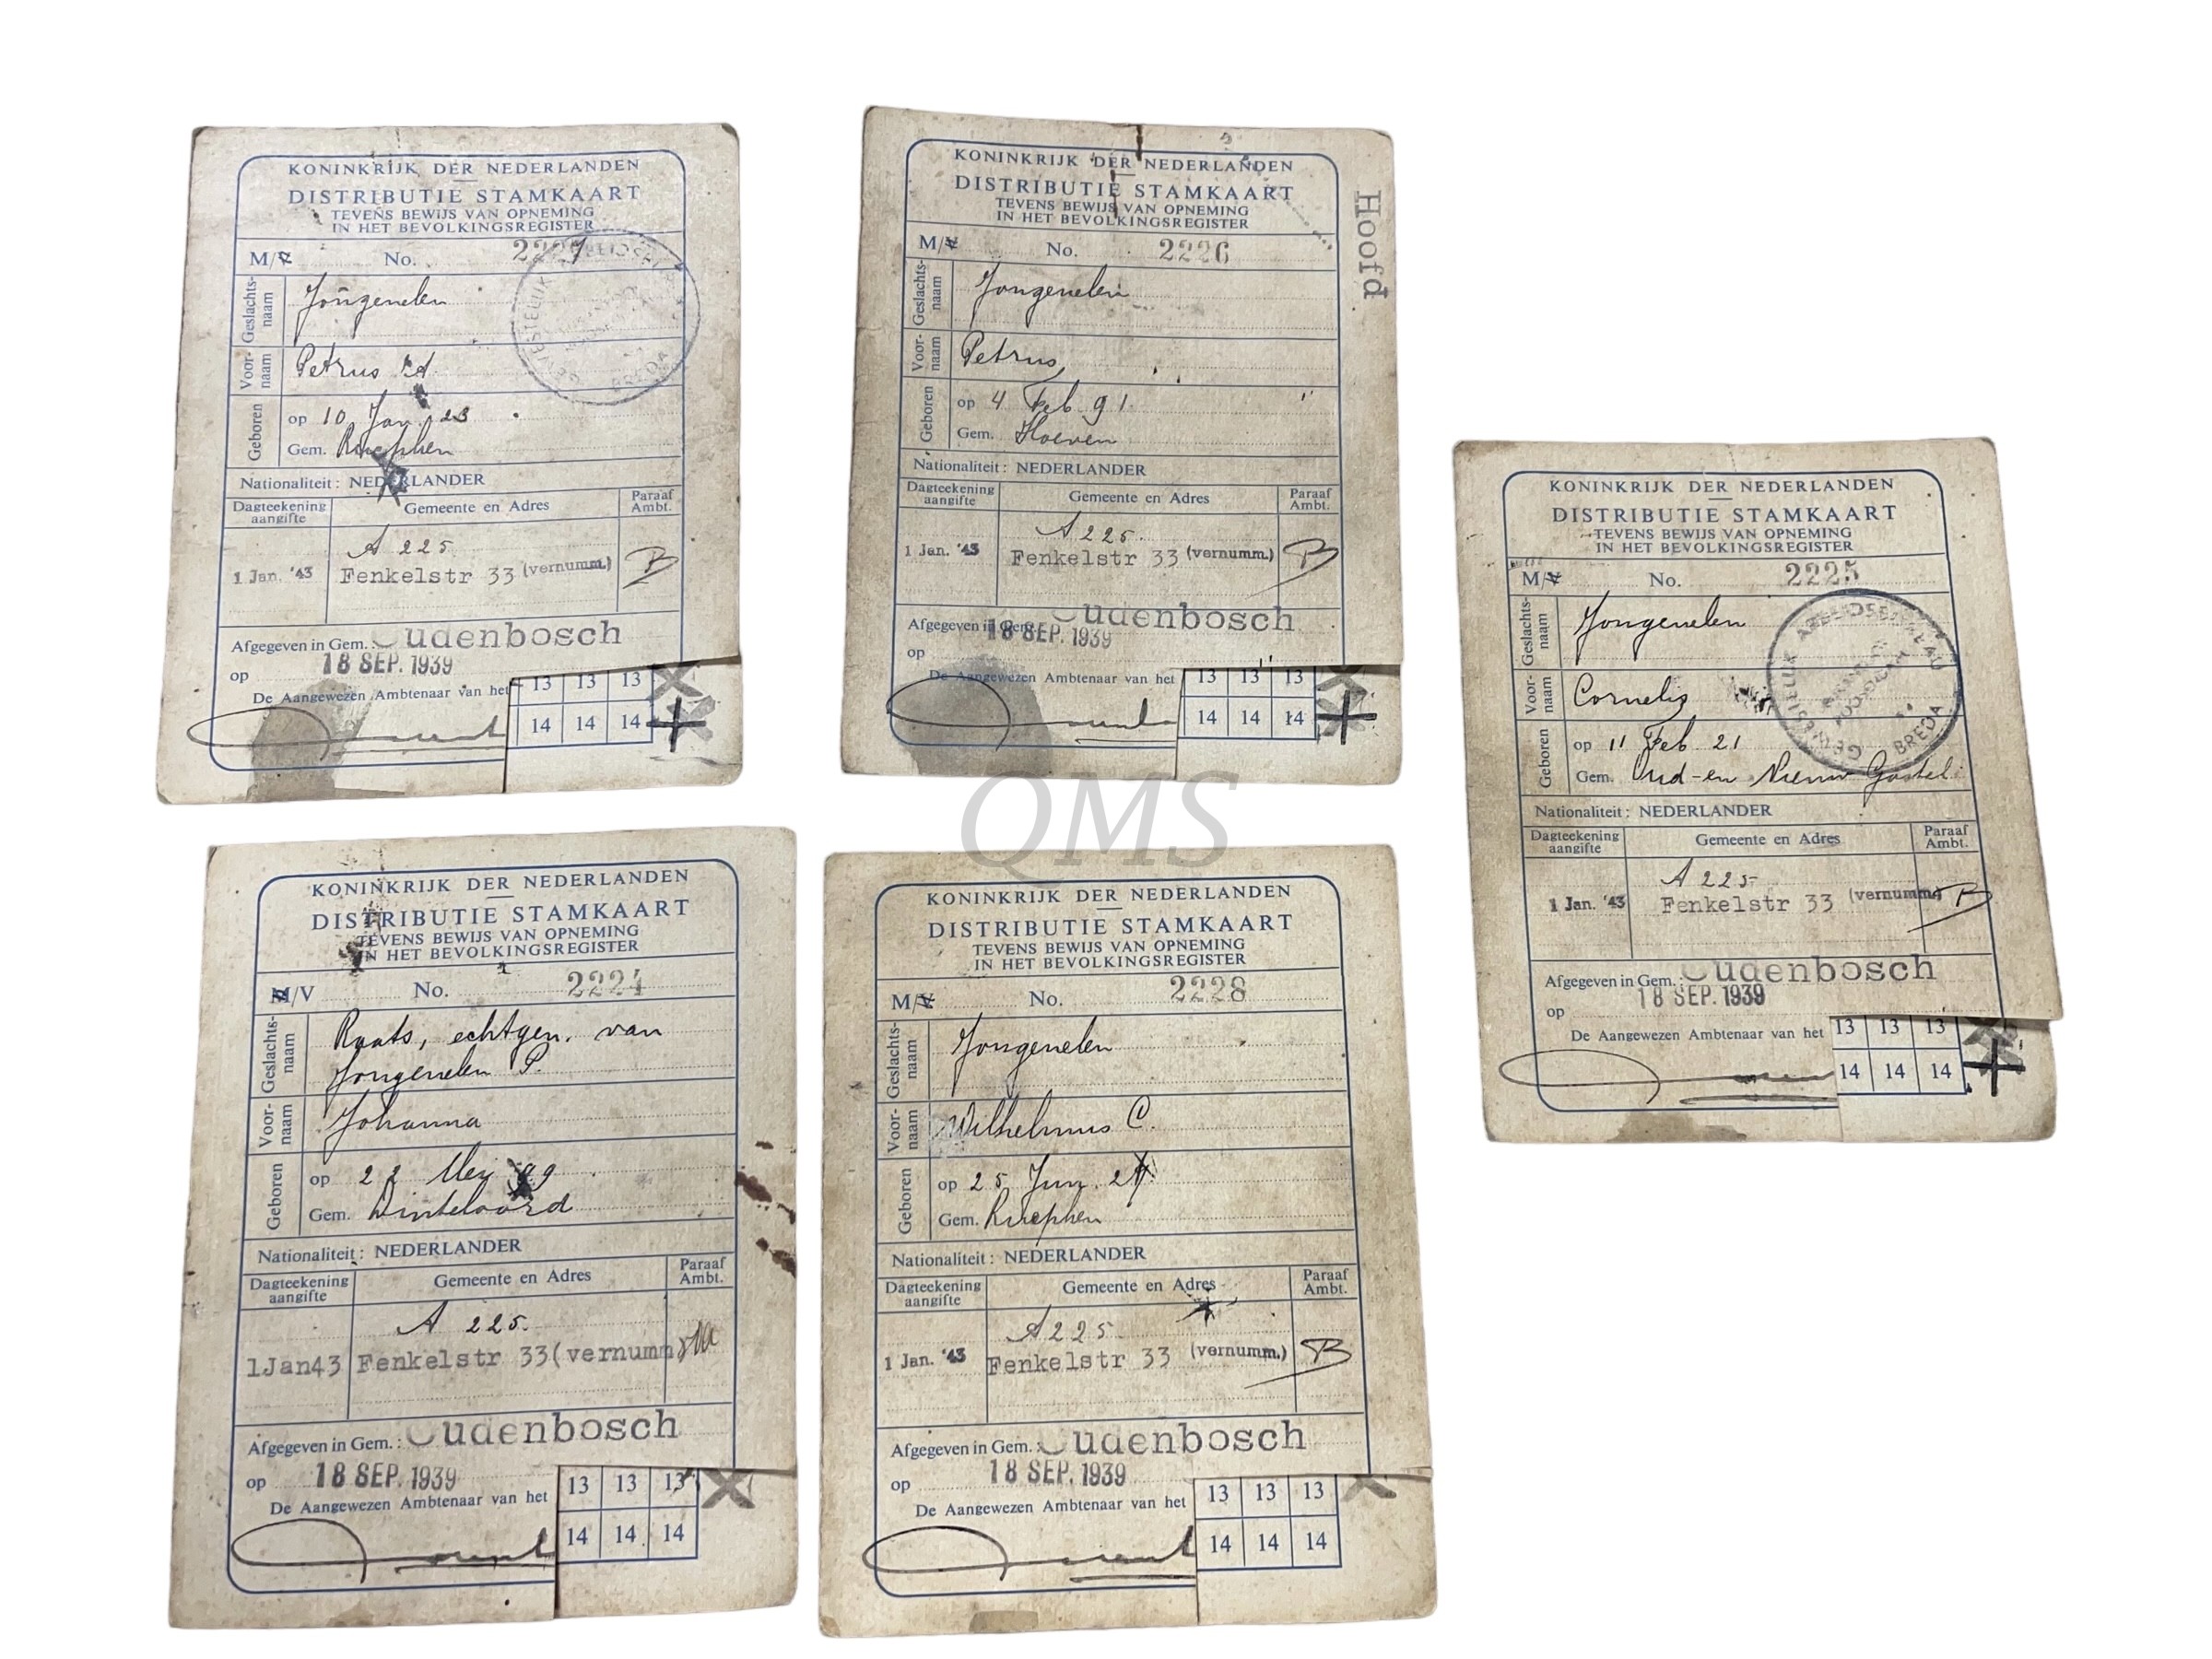 KONINKRIJK DER NEDERLANDEN
DISTRIBUTIE STAMKAART
TEVENS BEWIJS VAN OPNEMING
IN HET BEVOLKINGSREGISTER
M/V No. 2227
Geslachts-
naam
Jongenelen
Voor-
naam
Petrus
Geboren
op 10 Jan. 23
Gem.
Nationaliteit: NEDERLANDER
Dagteekening
aangifte
Gemeente en Adres
Paraaf
Ambt.
A 225
1 Jan. '43 Fenkelstr 33 (vernumm.) B
Afgegeven in Gem.: Oudenbosch
op 18 SEP. 1939
De Aangewezen Ambtenaar van het
13 13 13
14 14 14
GEWESTELIJK BREDA
KONINKRIJK DER NEDERLANDEN
DISTRIBUTIE STAMKAART
TEVENS BEWIJS VAN OPNEMING
IN HET BEVOLKINGSREGISTER
Hoofd
M/V No. 2226
Geslachts-
naam
Jongenelen
Voor-
naam
Petrus
Geboren
op 4 Feb 91
Gem. Hoeven
Nationaliteit: NEDERLANDER
Dagteekening
aangifte
Gemeente en Adres
Paraaf
Ambt.
A 225
1 Jan. '43 Fenkelstr 33 (vernumm.) B
Afgegeven in Gem. Oudenbosch
op 18 SEP. 1939
De Aangewezen Ambtenaar van het
13 13 13
14 14 14
KONINKRIJK DER NEDERLANDEN
DISTRIBUTIE STAMKAART
TEVENS BEWIJS VAN OPNEMING
IN HET BEVOLKINGSREGISTER
M/V No. 2225
Geslachts-
naam
Jongenelen
Voor-
naam
Cornelis
Geboren
op 11 Feb 21
Gem. Oud-en Nieuw Gastel
Nationaliteit: NEDERLANDER
Dagteekening
aangifte
Gemeente en Adres
Paraaf
Ambt.
A 225
1 Jan. '43 Fenkelstr 33 (vernumm.) B
Afgegeven in Gem.: Oudenbosch
op 18 SEP. 1939
De Aangewezen Ambtenaar van het
13 13 13
14 14 14
GEWESTELIJK ARBEIDSBUREAU BREDA
QMS
KONINKRIJK DER NEDERLANDEN
DISTRIBUTIE STAMKAART
TEVENS BEWIJS VAN OPNEMING
IN HET BEVOLKINGSREGISTER
M/V No. 2224
Geslachts-
naam
Raats, echtgen. van
Jongenelen P.
Voor-
naam
Johanna
Geboren
op 22 Mei 99
Gem. Dinteloord
Nationaliteit: NEDERLANDER
Dagteekening
aangifte
Gemeente en Adres
Paraaf
Ambt.
A 225
1Jan43 Fenkelstr 33(vernumm
Afgegeven in Gem.: Oudenbosch
op 18 SEP. 1939
De Aangewezen Ambtenaar van het
13 13 13
14 14 14
KONINKRIJK DER NEDERLANDEN
DISTRIBUTIE STAMKAART
TEVENS BEWIJS VAN OPNEMING
IN HET BEVOLKINGSREGISTER
M/V No. 2228
Geslachts-
naam
Jongenelen
Voor-
naam
Wilhelmus C.
Geboren
op 25 Jun.
Gem.
Nationaliteit: NEDERLANDER
Dagteekening
aangifte
Gemeente en Adres
Paraaf
Ambt.
A 225
1 Jan. '43 Fenkelstr 33 (vernumm.) B
Afgegeven in Gem.: Oudenbosch
op 18 SEP. 1939
De Aangewezen Ambtenaar van het
13 13 13
14 14 14